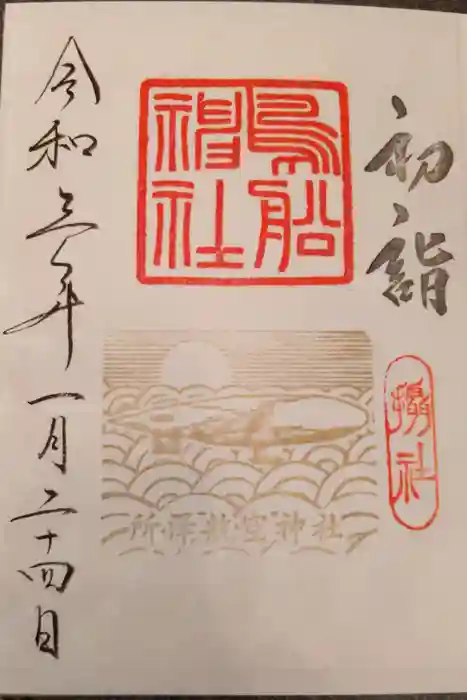 初詣
攝社
鳥船
神社
所澤航空神社
令和三年一月二十四日